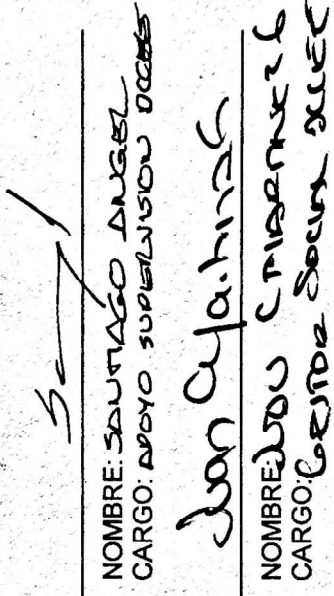 NOMBRE: SANTIAGO ANGEL
CARGO: APOYO SUPERVISION
Juan
NOMBRE: JUAN C MARTINEZ G
CARGO: GESTOR SOCIAL